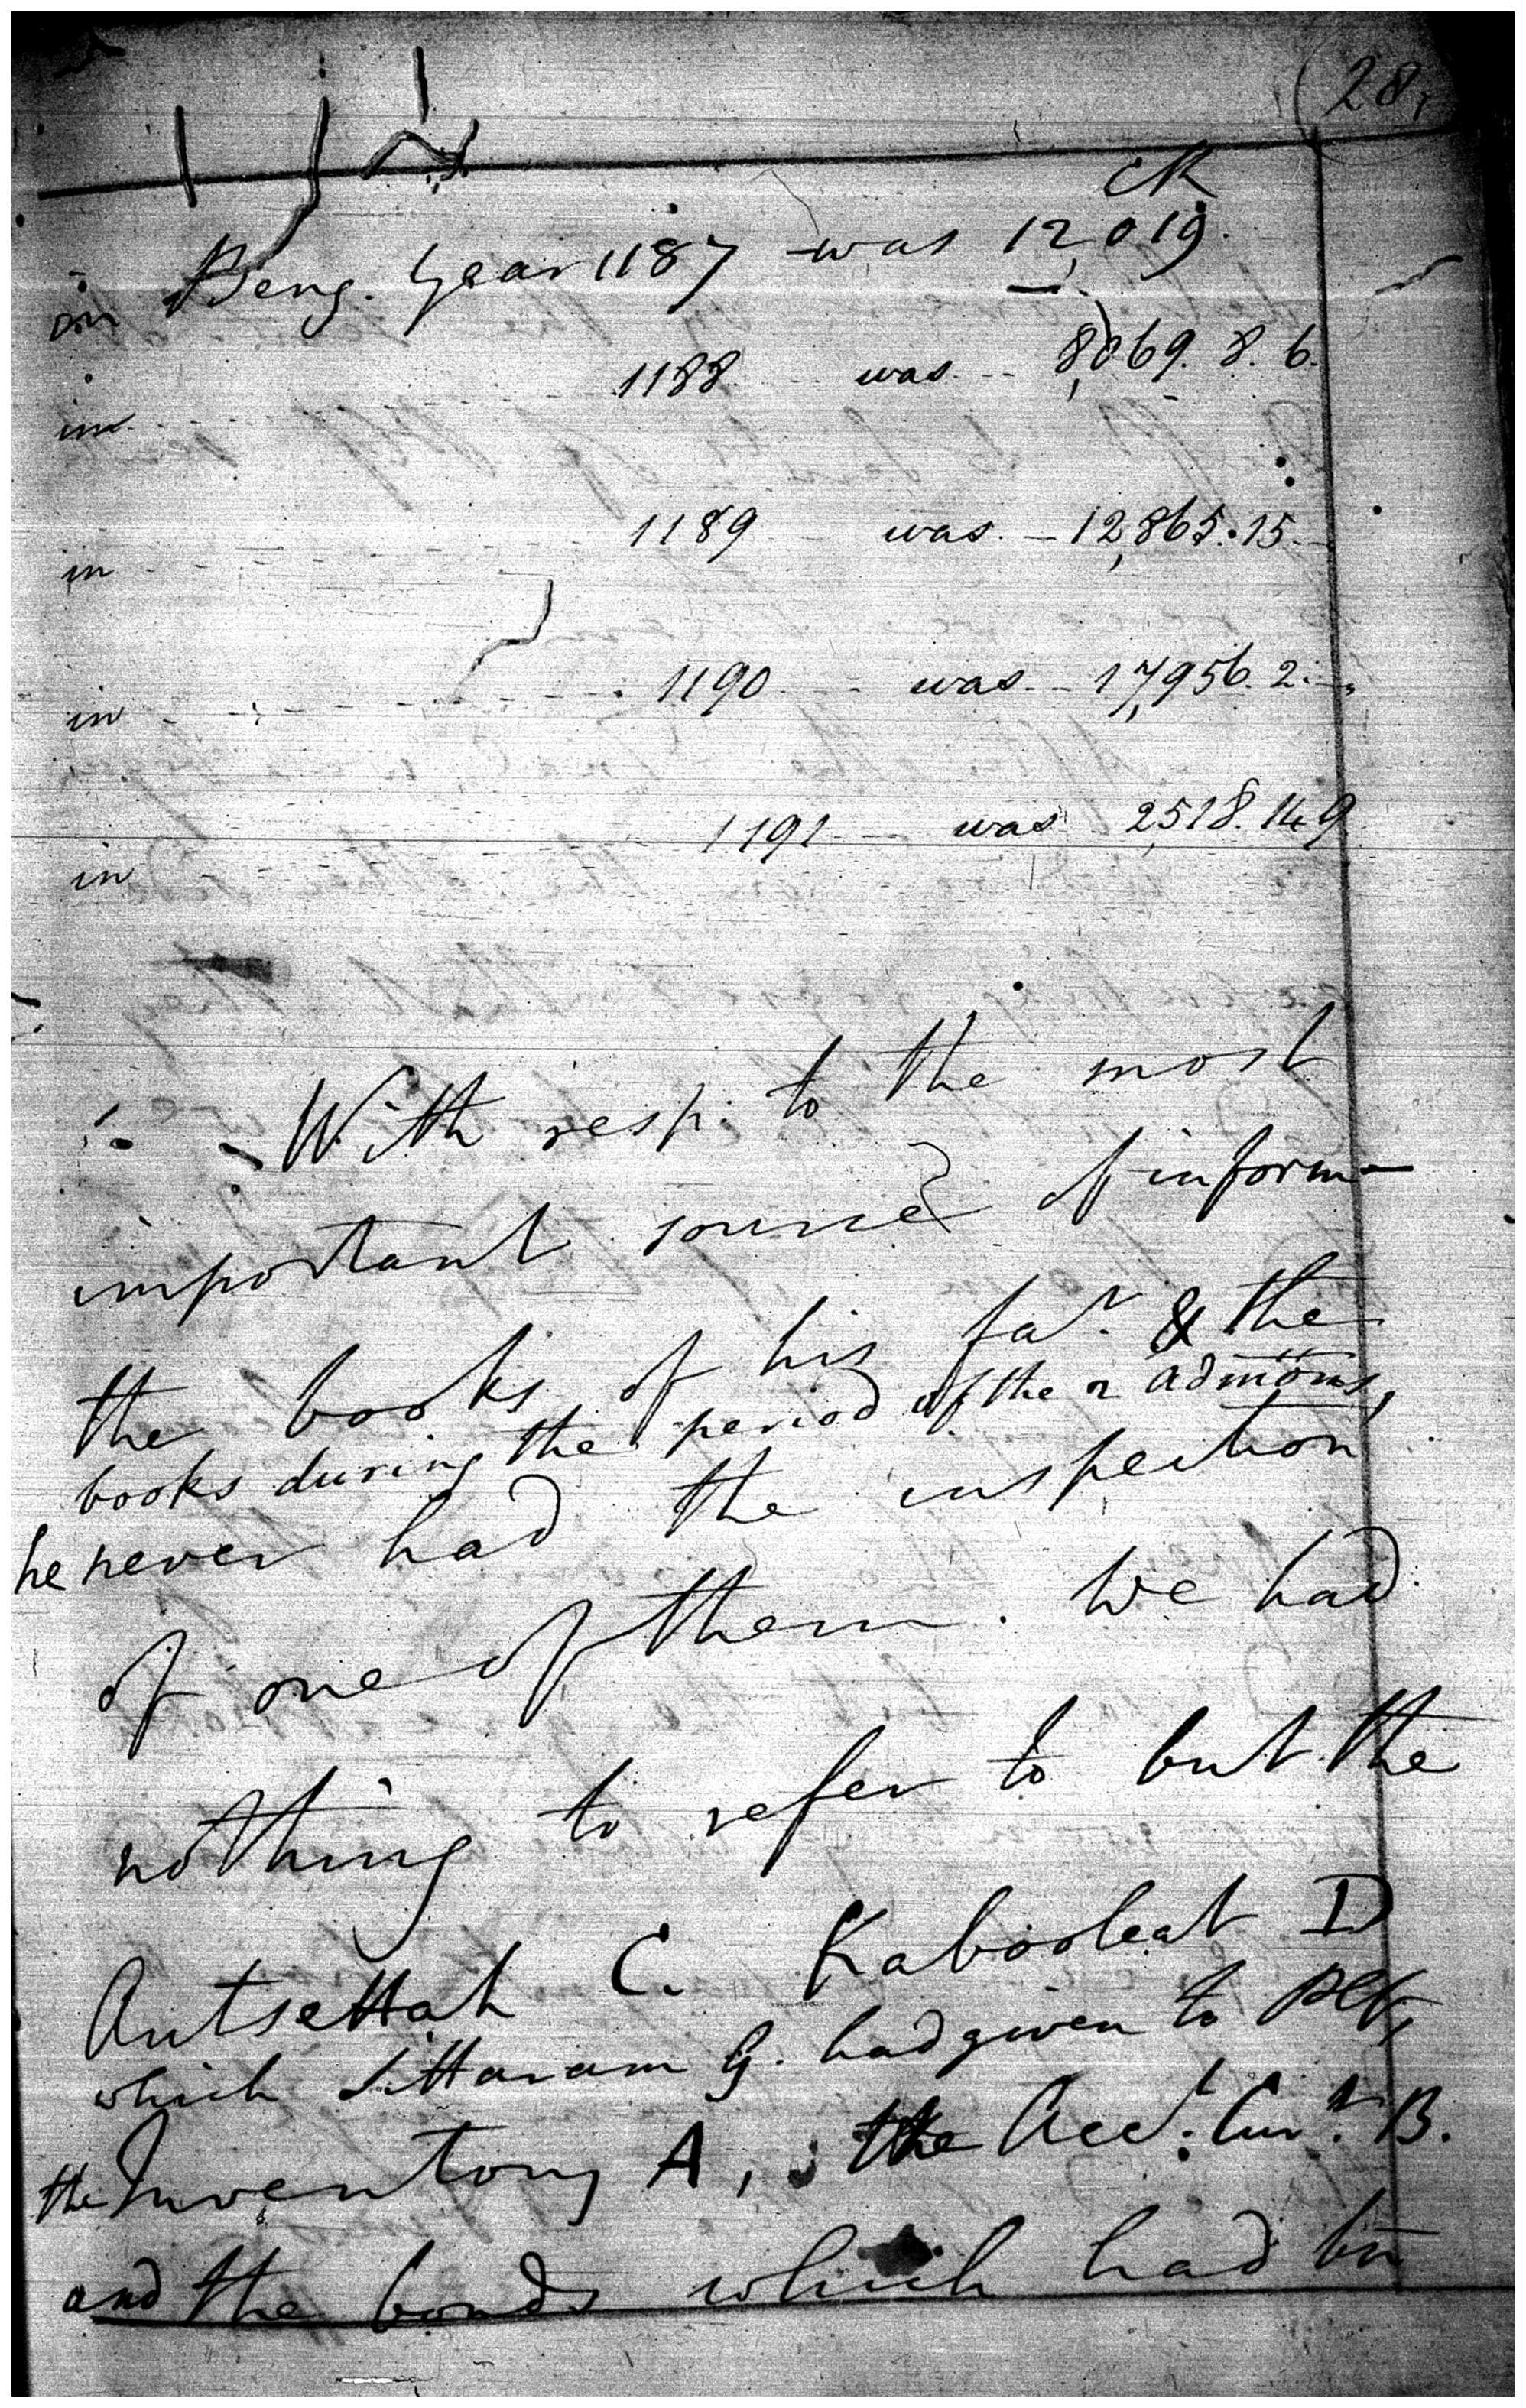 28,
CR
in Beng. Year 1187 was 12,019.
in 1188 was 8,069. 8. 6.
in 1189 was 12,865. 15
in 1190 was 17,956. 2.
in 1191 was 2,518. 14 9
With resp. to the most
important source of inform-
the books of his far. & the
books during the period of the 2 admons,
he never had the inspection
of one of them. We had
nothing to refer to but the
Autsettah C. Kabooleat D
which Sittaram G. had given to Plff,
the Inventory A, the Acct. Curt. B.
and the bonds which had bn